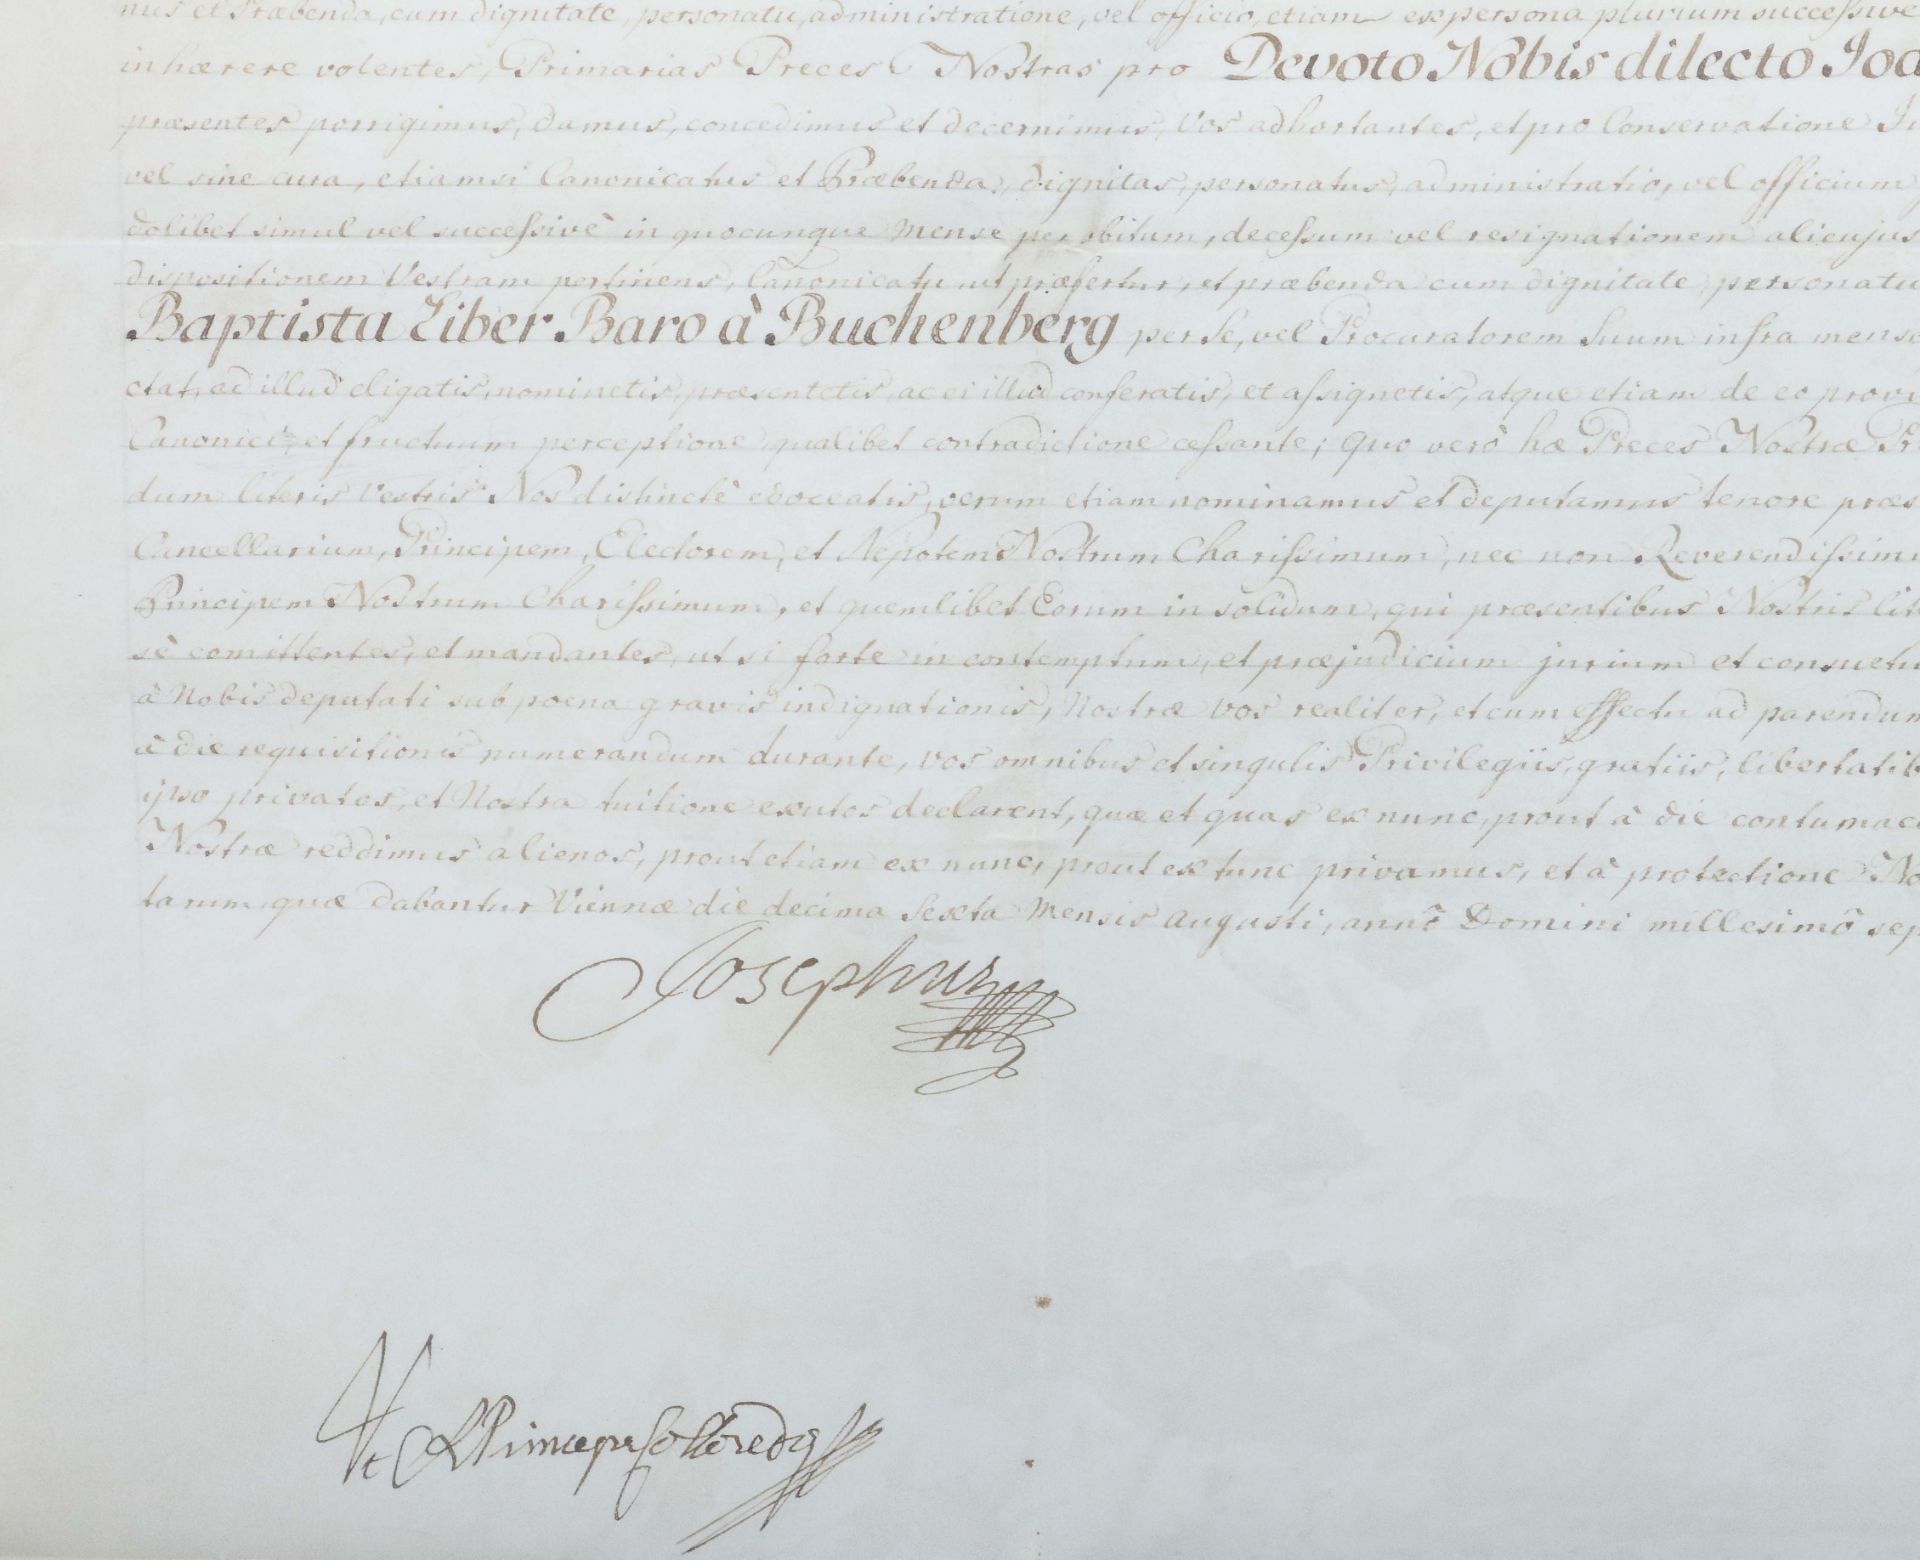 nus et Præbenda, cum dignitate, personatu, administratione, vel officio, etiam ex persona plurium successive
inhærere volentes, Primarias Preces Nostras pro Devoto Nobis dilecto Joa
præsentes porrigimus, damus, concedimus et decernimus, Vos adhortantes, et pro Conservatione
vel sine cura, etiamsi Canonicatus et Præbenda, dignitas, personatus, administratio, vel officium
dolibet simul vel successivè in quocunque Mense per obitum, decessum vel resignationem alicujus
dispositionem Vestram pertinens, Canonicatu ut præfertur, et præbenda cum dignitate, personatu
Baptista Liber Baro à Buchenberg per Se, vel Procuratorem Suum infra mens
ctat, ad illud eligatis, nominetis, præsentetis, ac ei illud conferatis, et assignetis, atque etiam de eo provi
Canonici, et fructuum perceptione qualibet contradictione cessante; Quo verò hæ Preces Nostræ Pr
dum literis Vestris Nos distinctè edoceatis, verum etiam nominamus et deputamus tenore præs
Cancellarium, Principem, Electorem, et Nepotem Nostrum Charissimum, nec non Reverendissim
Principem Nostrum Charissimum, et quemlibet Eorum in solidum, qui præsentibus Nostris lit
sè comittentes, et mandantes, ut si forte in contemptum, et præjudicium jurium et consuetu
à Nobis deputati sub poena gravis indignationis, Nostræ vos realiter, et cum effectu ad parendum
à die requisitionis numerandum durante, vos omnibus et singulis Privilegiis, gratiis, libertatib
ipso privatos, et Nostra tuitione exutos declarent, quæ et quas ex nunc, prout à die contumac
Nostræ reddimus alienos, prout etiam ex nunc, prout ex tunc privamus, et à protectione No
tarum, quæ dabantur Viennæ die decima Sexta Mensis Augusti, annô Domini millesimô sep
Josephus
Vt R Princeps Colloredo